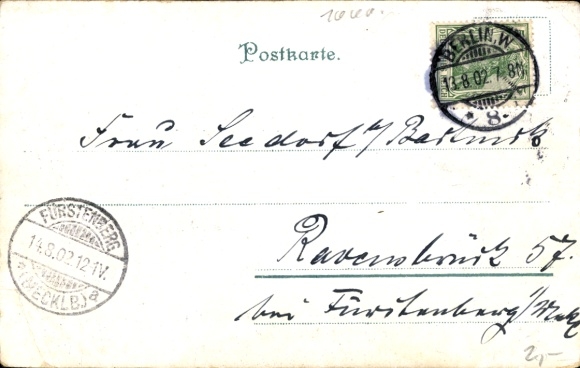 Postkarte.
BERLIN, W
13.8.02.7-8N.
* 8.
Frau Seedorf
Ravensbrück 57.
bei Fürstenberg i/Meckl
FÜRSTENBERG
14.8.02.12-1V.
(MECKLB.) a
2,-